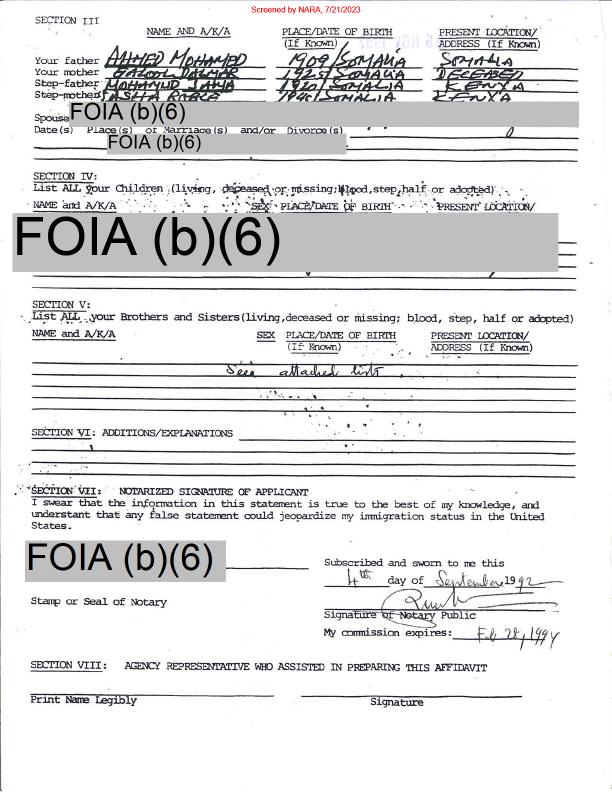 Screened by NARA, 7/21/2023
SECTION III
NAME AND A/K/A PLACE/DATE OF BIRTH PRESENT LOCATION/
(If Known) ADDRESS (If Known)
Your father AHMED MOHAMED 1909/SOMALIA SOMALIA
Your mother DALMAR 1925/SOMALIA DECEASED
Step-father MOHAMUD JAMA 1920/SOMALIA KENYA
Step-mother ASHA RABLE 1940/SOMALIA KENYA
Spouse FOIA (b)(6)
Date(s) Place(s) of Marriage(s) and/or Divorce(s)
FOIA (b)(6)
SECTION IV:
List ALL your Children (living, deceased or missing; blood, step, half or adopted)
NAME and A/K/A SEX PLACE/DATE OF BIRTH PRESENT LOCATION/
FOIA (b)(6)
SECTION V:
List ALL your Brothers and Sisters(living,deceased or missing; blood, step, half or adopted)
NAME and A/K/A SEX PLACE/DATE OF BIRTH PRESENT LOCATION/
(If Known) ADDRESS (If Known)
See attached list
SECTION VI: ADDITIONS/EXPLANATIONS
SECTION VII: NOTARIZED SIGNATURE OF APPLICANT
I swear that the information in this statement is true to the best of my knowledge, and
understand that any false statement could jeopardize my immigration status in the United
States.
FOIA (b)(6)
Subscribed and sworn to me this
4th day of September 1992
Stamp or Seal of Notary
Signature of Notary Public
My commission expires: Feb 28, 1994
SECTION VIII: AGENCY REPRESENTATIVE WHO ASSISTED IN PREPARING THIS AFFIDAVIT
Print Name Legibly Signature